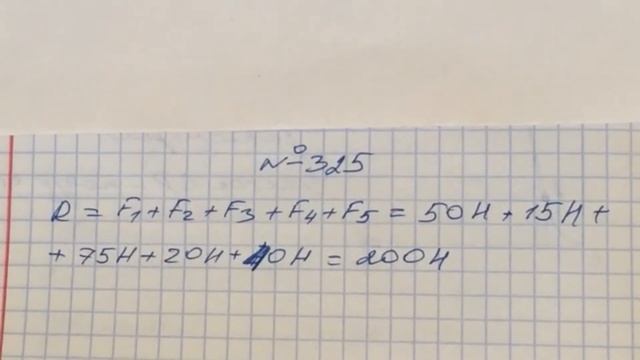 №325
R = F₁ + F₂ + F₃ + F₄ + F₅ = 50Н + 15Н +
+ 75Н + 20Н + 40Н = 200Н